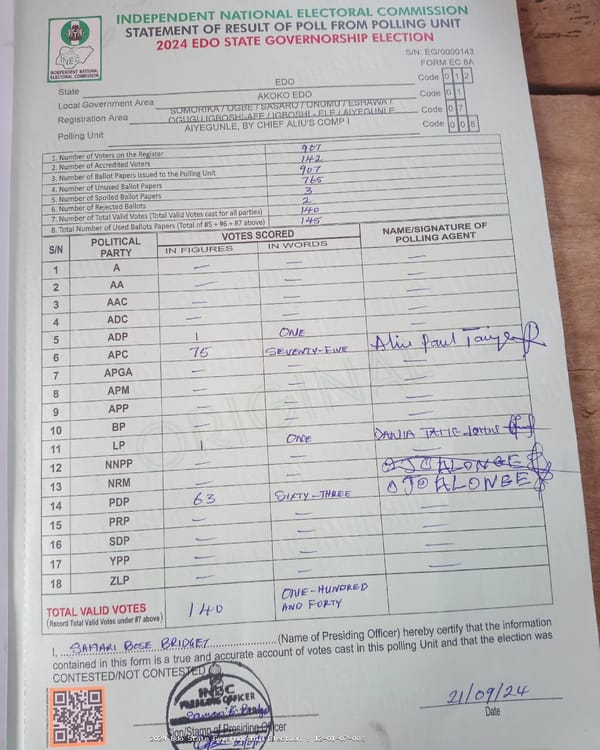 INDEPENDENT NATIONAL ELECTORAL COMMISSION
STATEMENT OF RESULT OF POLL FROM POLLING UNIT
2024 EDO STATE GOVERNORSHIP ELECTION
INEC
INDEPENDENT NATIONAL
ELECTORAL COMMISSION
S/N: EG/0000143
FORM EC 8A
State EDO Code 0 1 2
Local Government Area AKOKO EDO Code 0 1
Registration Area SOMORIKA / OGBE / SASARO / ONUMU / ESHAWA / OGUGU IGBOSHI-AFE / IGBOSHI - ELE / AIYEGUNLE Code 0 7
Polling Unit AIYEGUNLE, BY CHIEF ALIU'S COMP I Code 0 0 8
1. Number of Voters on the Register 907
2. Number of Accredited Voters 142
3. Number of Ballot Papers Issued to the Polling Unit 907
4. Number of Unused Ballot Papers 765
5. Number of Spoiled Ballot Papers 3
6. Number of Rejected Ballots 2
7. Number of Total Valid Votes (Total Valid Votes cast for all parties) 140
8. Total Number of Used Ballots Papers (Total of #5 + #6 + #7 above) 145
S/N POLITICAL PARTY VOTES SCORED NAME/SIGNATURE OF POLLING AGENT
IN FIGURES IN WORDS
1 A — — —
2 AA — — —
3 AAC — — —
4 ADC — — —
5 ADP 1 ONE
6 APC 75 SEVENTY-FIVE Aliu Paul
7 APGA — — —
8 APM — — —
9 APP — — —
10 BP — — —
11 LP 1 ONE
12 NNPP — — OJO ALONGE
13 NRM — — OJO ALONGE
14 PDP 63 SIXTY-THREE
15 PRP — — —
16 SDP — — —
17 YPP — — —
18 ZLP — — —
TOTAL VALID VOTES 140 ONE-HUNDRED AND FORTY
(Record Total Valid Votes under #7 above)
ORIGINAL
I, SAMARI BOSE BRIDGET (Name of Presiding Officer) hereby certify that the information
contained in this form is a true and accurate account of votes cast in this polling Unit and that the election was
CONTESTED/NOT CONTESTED
INEC
PRESIDING OFFICER
21/09/24
Sign/Stamp of Presiding Officer
Date